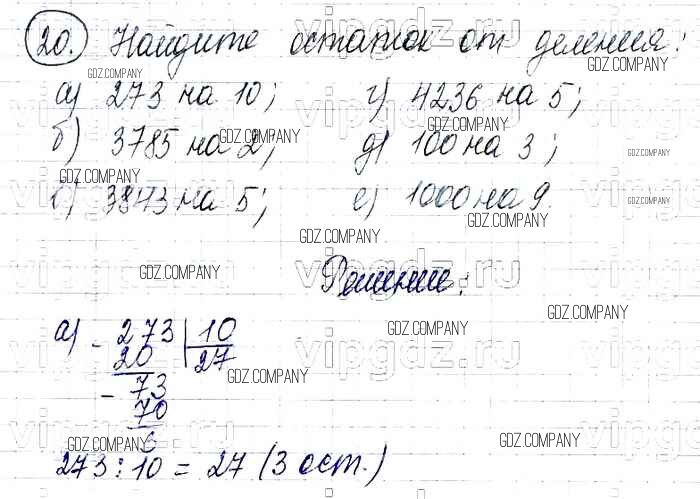 20. Найдите остаток от деления:
а) 273 на 10; г) 4236 на 5;
б) 3785 на 2; д) 100 на 3;
в) 3843 на 5; е) 1000 на 9.
Решение:
а) - 273 | 10
20 27
- 73
70
273 : 10 = 27 (3 ост.)
vipgdz.ru
GDZ.COMPANY